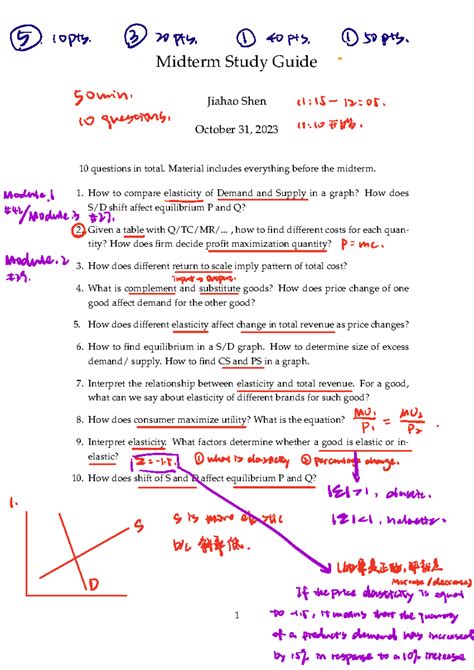 ⑤ 10pts. ③ 20pts. ① 40pts. ① 50pts.
Midterm Study Guide
50min. Jiahao Shen 11:15 - 12:05.
10 questions. 11:10 开始.
October 31, 2023
10 questions in total. Material includes everything before the midterm.
Module 1 1. How to compare elasticity of Demand and Supply in a graph? How does
#42/Module 3 #27. S/D shift affect equilibrium P and Q?
2. Given a table with Q/TC/MR/... , how to find different costs for each quan-
tity? How does firm decide profit maximization quantity? P=mc.
Module 2
#39. 3. How does different return to scale imply pattern of total cost?
input → output.
4. What is complement and substitute goods? How does price change of one
good affect demand for the other good?
5. How does different elasticity affect change in total revenue as price changes?
6. How to find equilibrium in a S/D graph. How to determine size of excess
demand/ supply. How to find CS and PS in a graph.
7. Interpret the relationship between elasticity and total revenue. For a good,
what can we say about elasticity of different brands for such good?
8. How does consumer maximize utility? What is the equation? MU1/P1 = MU2/P2
9. Interpret elasticity. What factors determine whether a good is elastic or in-
elastic? Σ=-1.5. ① what is elasticity ② percentage change.
10. How does shift of S and D affect equilibrium P and Q?
|Σ|>1, elastic.
|Σ|<1, inelastic.
1.
S
S is more elastic
b/c 斜率低.
D
(increase/decrease)
If the price elasticity is equal
to -1.5, it means that the quantity
of a product's demand has increased
by 15% in response to a 10% increase
1